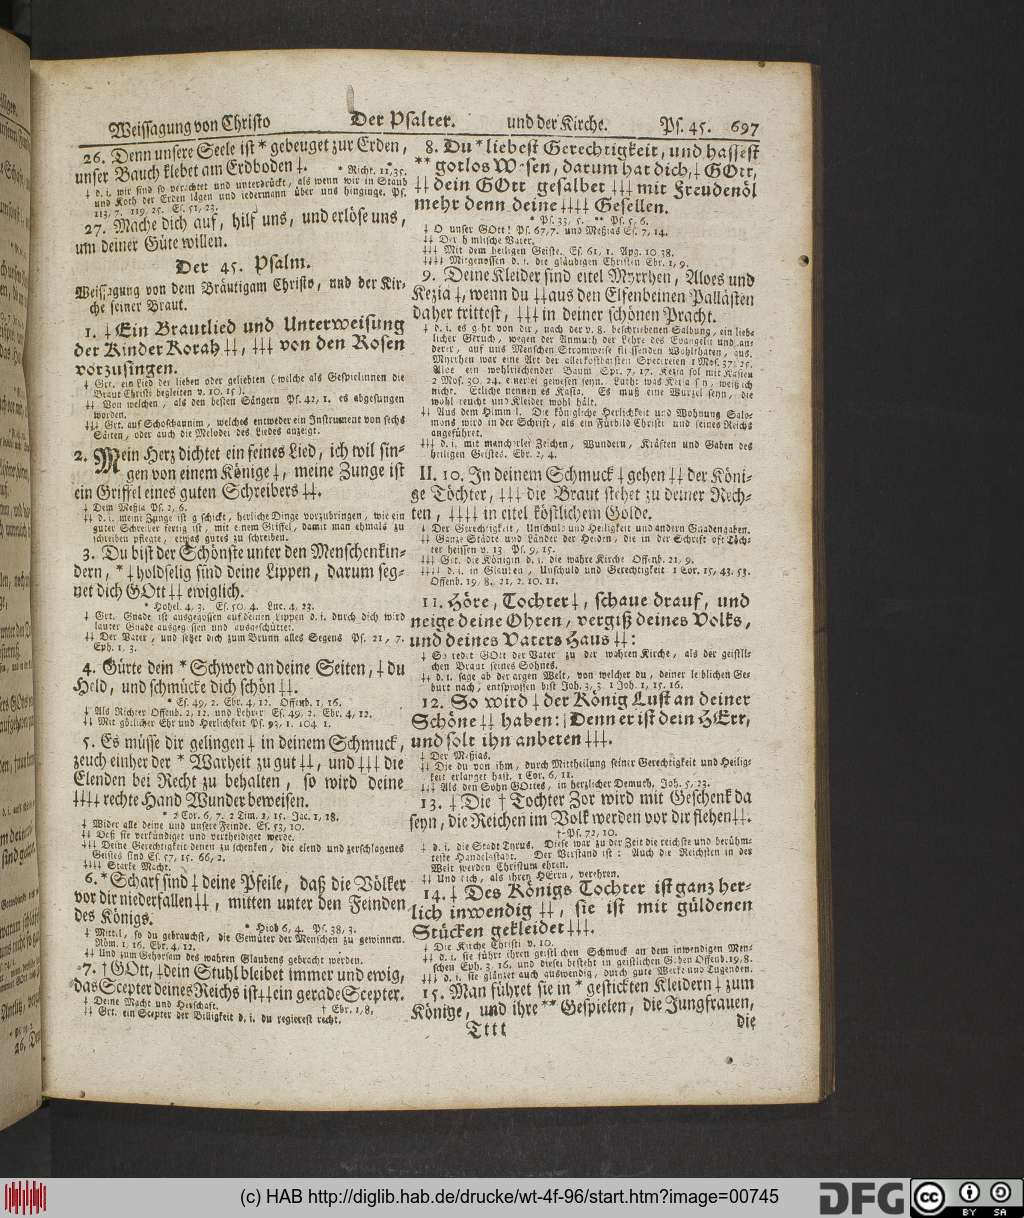 Weissagung von Christo Der Psalter. und der Kirche. Ps. 45. 697
26. Denn unsere Seele ist * gebeuget zur Erden,
unser Bauch klebet am Erdboden ‡. * Richt. 11, 35.
‡ d. i. wir sind so verachtet und unterdrückt, als wenn wir in Staub
und Koth der Erden lägen und iedermann über uns hinginge. Ps.
113, 7. 119, 25. Es. 51, 23.
27. Mache dich auf, hilf uns, und erlöse uns,
um deiner Güte willen.
Der 45. Psalm.
Weissagung von dem Bräutigam Christo, und der Kir-
che seiner Braut.
1. ‡ Ein Brautlied und Unterweisung
der Kinder Korah ‡‡, ‡‡‡ von den Rosen
vorzusingen.
‡ Grt. ein Lied der lieben oder geliebten (welche als Gespielinnen die
Braut Christi begleiten v. 10. 15).
‡‡ Von welchen, als den besten Sängern Ps. 42, 1. es abgesungen
worden.
‡‡‡ Grt. auf Schoschannim, welches entweder ein Instrument von sechs
Saiten, oder auch die Melodei des Liedes anzeigt.
2. Mein Herz dichtet ein feines Lied, ich wil sin-
gen von einem Könige ‡, meine Zunge ist
ein Griffel eines guten Schreibers ‡‡.
‡ Dem Meßia Ps. 2, 6.
‡‡ d. i. meine Zunge ist geschickt, herliche Dinge vorzubringen, wie ein
guter Schreiber fertig ist, mit einem Griffel, damit man ehmals zu
schreiben pflegte, etwas gutes zu schreiben.
3. Du bist der Schönste unter den Menschenkin-
dern, * ‡ holdselig sind deine Lippen, darum seg-
net dich GOtt ‡‡ ewiglich.
* Hohel. 4, 3. Es. 50, 4. Luc. 4, 22.
‡ Grt. Gnade ist ausgegossen auf deinen Lippen d. i. durch dich wird
lauter Gnade ausgegossen und ausgeschüttet.
‡‡ Der Vater, und setzet dich zum Brunn alles Segens Ps. 21, 7.
Eph. 1, 3.
4. Gürte dein * Schwerd an deine Seiten, ‡ du
Held, und schmücke dich schön ‡‡.
* Es. 49, 2. Ebr. 4, 12. Offenb. 1, 16.
‡ Als Richter Offenb. 2, 12. und Lehrer Es. 49, 2. Ebr. 4, 12.
‡‡ Mit götlicher Ehr und Herlichkeit Ps. 93, 1. 104 1.
5. Es müsse dir gelingen ‡ in deinem Schmuck,
zeuch einher der * Warheit zu gut ‡‡, und ‡‡‡ die
Elenden bei Recht zu behalten, so wird deine
‡‡‡‡ rechte Hand Wunder beweisen.
* 2 Cor. 6, 7. 2 Tim. 2, 15. Jac. 1, 18.
‡ Wider alle deine und unsere Feinde. Es. 53, 10.
‡‡ Daß sie verkündiget und vertheidiget werde.
‡‡‡ Deine Gerechtigkeit denen zu schenken, die elend und zerschlagenes
Geistes sind Es. 57, 15. 66, 2.
‡‡‡‡ Starke Macht.
6. * Scharf sind ‡ deine Pfeile, daß die Völker
vor dir niederfallen ‡‡, mitten unter den Feinden
des Königs. * Hiob 6, 4. Ps. 38, 3.
‡ Mittel, so du gebrauchst, die Gemüter der Menschen zu gewinnen.
Röm. 1, 16. Ebr. 4, 12.
‡‡ Und zum Gehorsam des wahren Glaubens gebracht werden.
7. † GOtt, ‡ dein Stuhl bleibet immer und ewig,
das Scepter deines Reichs ist ‡‡ ein gerade Scepter.
‡ Deine Macht und Herschaft. † Ebr. 1, 8.
‡‡ Grt. ein Scepter der Billigkeit d. i. du regierest recht.
8. Du * liebest Gerechtigkeit, und hassest
** gotlos Wesen, darum hat dich, ‡ GOtt,
‡‡ dein GOtt gesalbet ‡‡‡ mit Freudenöl
mehr denn deine ‡‡‡‡ Gesellen.
* Ps. 33, 5. ** Ps. 5, 6.
‡ O unser GOtt! Ps. 67, 7. und Meßias Es. 7, 14.
‡‡ Der himlische Vater.
‡‡‡ Mit dem heiligen Geiste. Es. 61, 1. Apg. 10 38.
‡‡‡‡ Mitgenossen d. i. die gläubigen Christen Ebr. 1, 9.
9. Deine Kleider sind eitel Myrrhen, Aloes und
Kezia ‡, wenn du ‡‡ aus den Elfenbeinen Pallästen
daher trittest, ‡‡‡ in deiner schönen Pracht.
‡ d. i. es geht von dir, nach der v. 8. beschriebenen Salbung, ein lieb-
licher Geruch, wegen der Anmuth der Lehre des Evangelii und an-
derer, auf uns Menschen Stromweise fliessenden Wohlthaten, aus.
Myrrhen war eine Art der allerkostbarsten Specereien 1 Mos. 37, 25.
Aloe ein wohlriechender Baum Spr. 7, 17. Kezia sol mit Kasien
2 Mos. 30, 24. einerlei gewesen seyn. Luth: was Kezia sen, weiß ich
nicht. Etliche nennen es Kasia. Es muß eine Wurzel seyn, die
wohl reucht und Kleider wohl hält.
‡‡ Aus dem Himmel. Die königliche Herlichkeit und Wohnung Salo-
mons wird in der Schrift, als ein Fürbild Christi und seines Reichs
angeführet.
‡‡‡ d. i. mit mancherlei Zeichen, Wundern, Kräften und Gaben des
heiligen Geistes. Ebr. 2, 4.
II. 10. In deinem Schmuck ‡ gehen ‡‡ der Köni-
ge Töchter, ‡‡‡ die Braut stehet zu deiner Rech-
ten, ‡‡‡‡ in eitel köstlichem Golde.
‡ Der Gerechtigkeit, Unschuld und Heiligkeit und andern Gnadengaben.
‡‡ Ganze Städte und Länder der Heiden, die in der Schrift oft Töch-
ter heissen v. 13. Ps. 9, 15.
‡‡‡ Grt. die Königin d. i. die wahre Kirche Offenb. 21, 9.
‡‡‡‡ d. i. in Glauben, Unschuld und Gerechtigkeit 1 Cor. 15, 43. 53.
Offenb. 19, 8. 21, 2. 10. 11.
11. Höre, Tochter ‡, schaue drauf, und
neige deine Ohren, vergiß deines Volks,
und deines Vaters Haus ‡‡:
‡ So redet GOtt der Vater zu der wahren Kirche, als der geistli-
chen Braut seines Sohnes.
‡‡ d. i. sage ab der argen Welt, von welcher du, deiner leiblichen Ge-
burt nach, entsprossen bist Joh. 3, 3. 1 Joh. 1, 15. 16.
12. So wird ‡ der König Lust an deiner
Schöne ‡‡ haben: Denn er ist dein HErr,
und solt ihn anbeten ‡‡‡.
‡ Der Meßias.
‡‡ Die du von ihm, durch Mittheilung seiner Gerechtigkeit und Heilig-
keit erlanget hast. 1 Cor. 6, 11.
‡‡‡ Als den Sohn GOttes, in herzlicher Demuth. Joh. 5, 23.
13. ‡ Die † Tochter Zor wird mit Geschenk da
seyn, die Reichen im Volk werden vor dir flehen ‡‡.
† Ps. 72, 10.
‡ d. i. die Stadt Tyrus. Diese war zu der Zeit die reichste und berühm-
teste Handelsstadt. Der Verstand ist: Auch die Reichsten in der
Welt werden Christum ehren.
‡‡ Und dich, als ihren HErrn, verehren.
14. ‡ Des Königs Tochter ist ganz her-
lich inwendig ‡‡, sie ist mit güldenen
Stücken gekleidet ‡‡‡.
‡ Die Kirche Christi v. 10.
‡‡ d. i. sie führt ihren geistlichen Schmuck an dem inwendigen Men-
schen Eph. 3, 16. und dieser besteht in geistlichen Gaben Offenb. 19, 8.
‡‡‡ d. i. sie glänzet auch auswendig, durch gute Werke und Tugenden.
15. Man führet sie in * gestickten Kleidern ‡ zum
Könige, und ihre ** Gespielen, die Jungfrauen,
Tttt die
(c) HAB http://diglib.hab.de/drucke/wt-4f-96/start.htm?image=00745
DFG cc BY SA